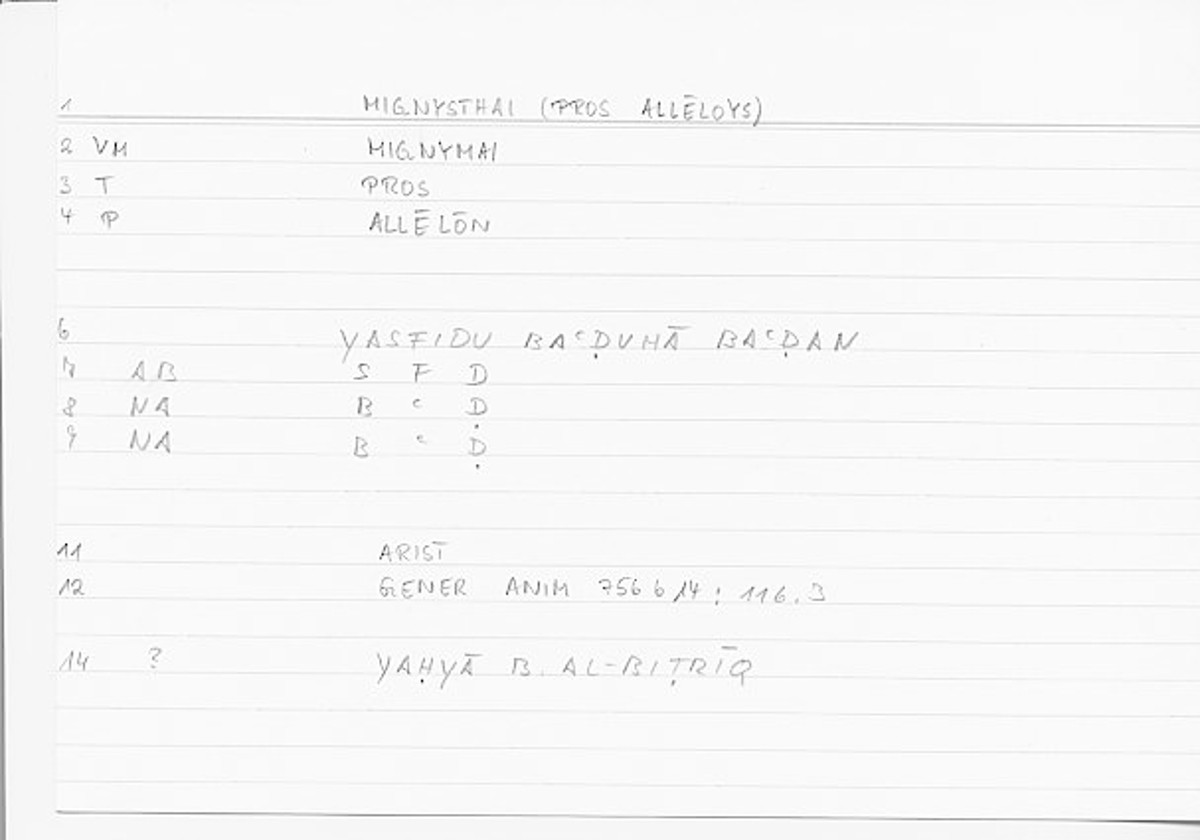 1 MIGNYSTHAI (PROS ALLĒLOYS)
2 VM MIGNYMAI
3 T PROS
4 P ALLĒLŌN
6 YASFIDU BAʿḌUHĀ BAʿḌAN
7 AB S F D
8 NA B ʿ Ḍ
9 NA B ʿ Ḍ
11 ARIST
12 GENER ANIM 756 b 14 ; 116.3
14 ? YAḤYĀ B. AL-BIṬRĪQ